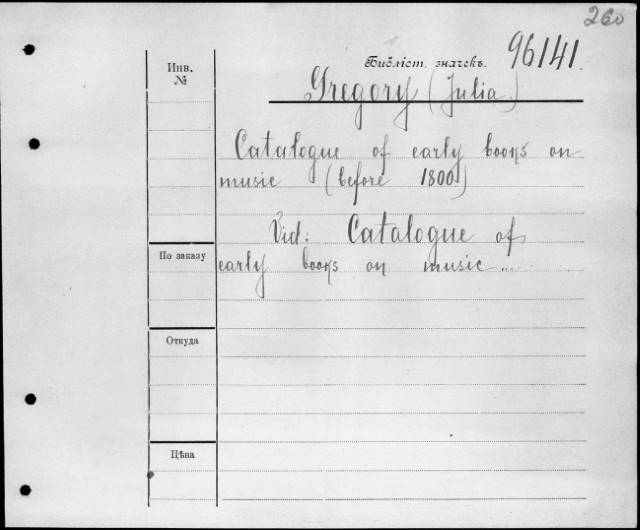 260
Инв.
№
Библіот. значекъ. 96141.
Gregory (Julia)
Catalogue of early books on
music (before 1800)
Vid: Catalogue of
early books on music...
По заказу
Откуда
Цѣна